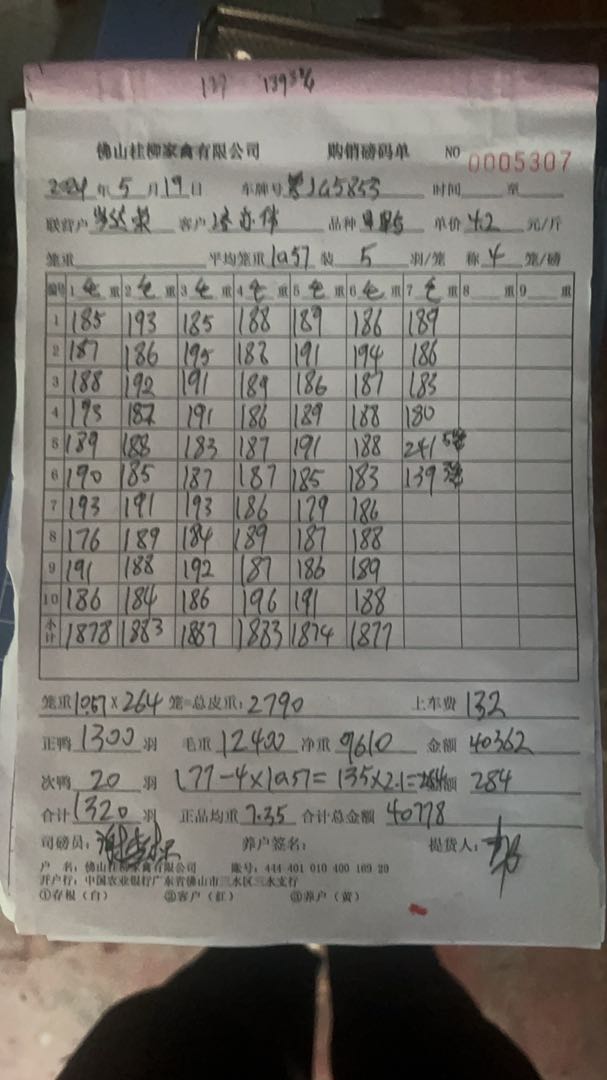 137 139
佛山桂柳家禽有限公司 购销磅码单 NO 0005307
2024年5月19日 车牌号 1G5853 时间 至
联营户 客户 品种 单价 4.2 元/斤
笼重 平均笼重 10.57 装 5 羽/笼 称 4 笼/磅
编号 1 毛 重 2 毛 重 3 毛 重 4 毛 重 5 毛 重 6 毛 重 7 毛 重 8 重 9 重
1 185 193 185 188 189 186 189
2 187 186 195 188 191 194 186
3 188 192 191 189 186 187 183
4 193 187 191 186 189 188 180
5 189 188 183 187 191 188 241 5笼
6 190 185 187 187 185 183 139 3笼
7 193 191 193 186 179 186
8 176 189 184 189 187 188
9 191 188 192 187 186 189
10 186 184 186 196 191 188
小计 1878 1883 1887 1883 1874 1877
笼重 10.57 X 264 笼=总皮重: 2790 上车费 132
正鸭 1300 羽 毛重 12400 净重 9610 金额 40362
次鸭 20 羽 177-4×10.57=135×2.1= 额 284
合计 1320 羽 正品均重 7.35 合计总金额 40778
司磅员: 养户签名: 提货人:
户 名: 佛山桂柳家禽有限公司 账号: 444 401 010 400 169 20
开户行: 中国农业银行广东省佛山市三水区三水支行
①存根(白) ②客户(红) ③养户(黄)